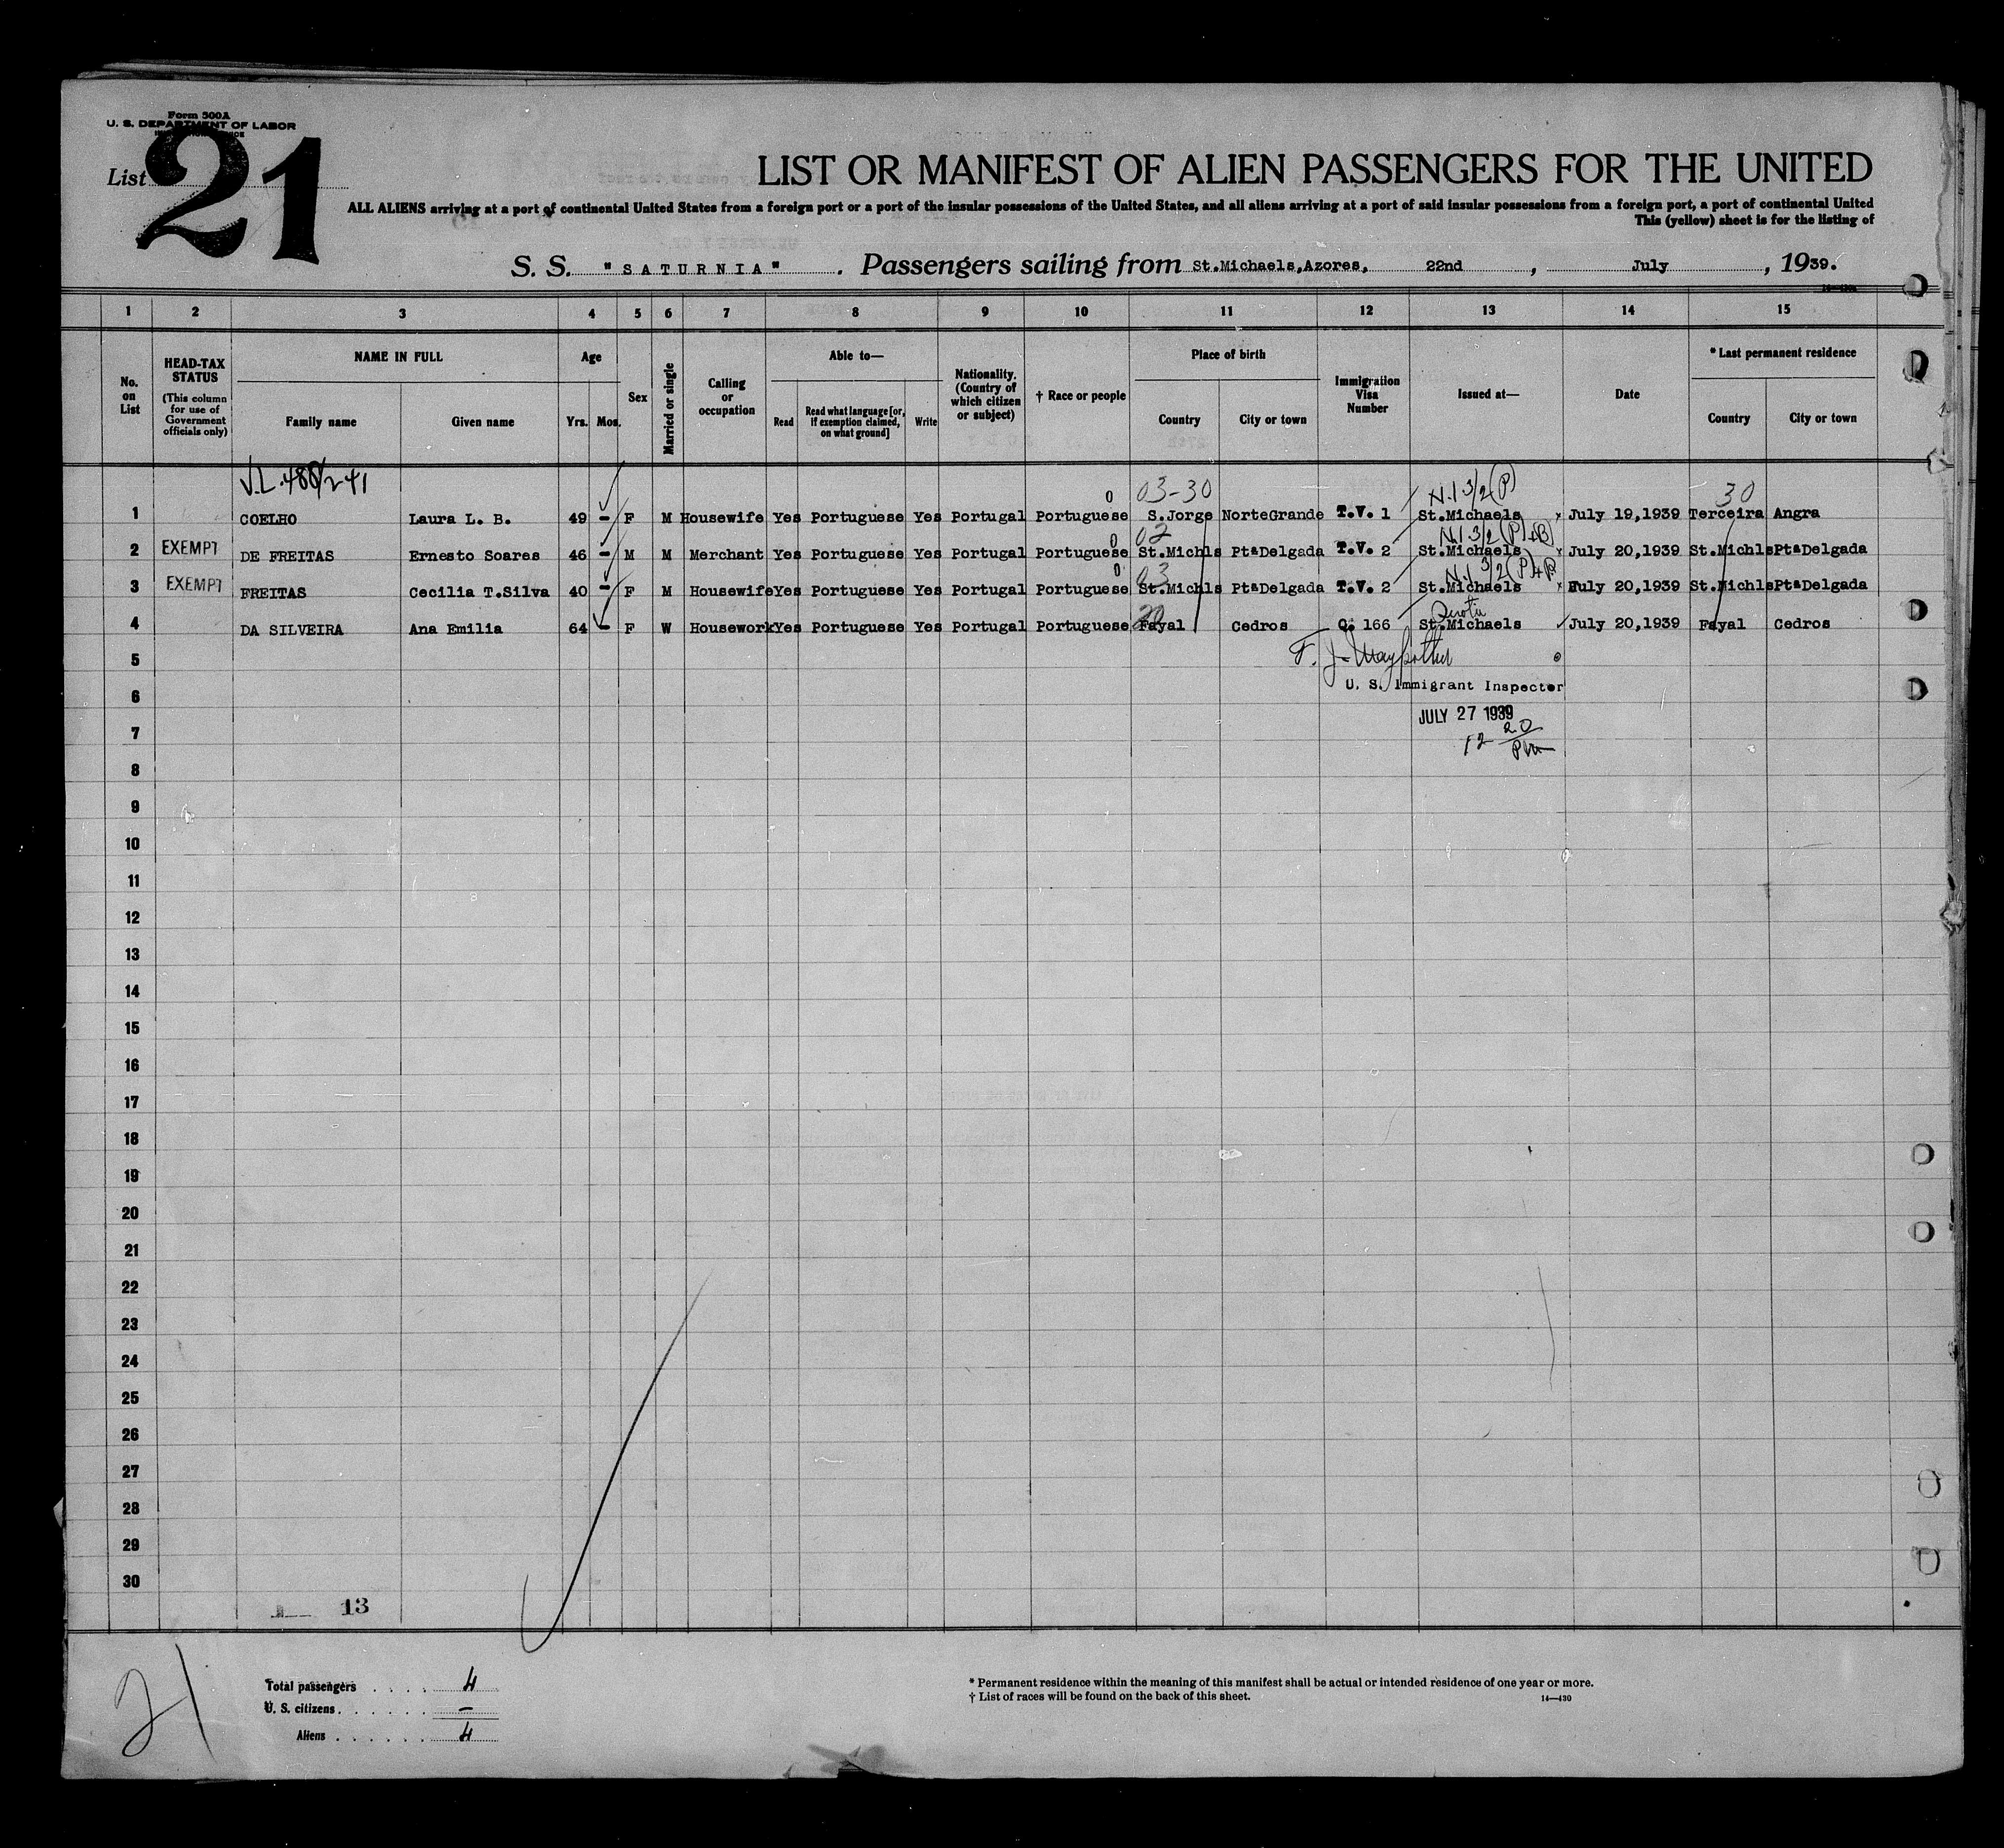 Form 500A
U. S. DEPARTMENT OF LABOR
List 21
LIST OR MANIFEST OF ALIEN PASSENGERS FOR THE UNITED
ALL ALIENS arriving at a port of continental United States from a foreign port or a port of the insular possessions of the United States, and all aliens arriving at a port of said insular possessions from a foreign port, a port of continental United
This (yellow) sheet is for the listing of
S. S. "SATURNIA". Passengers sailing from St.Michaels,Azores, 22nd, July, 1939.
1 2 3 4 5 6 7 8 9 10 11 12 13 14 15
No. on List
HEAD-TAX STATUS (This column for use of Government officials only)
NAME IN FULL
Family name Given name
Age
Yrs. Mos.
Sex
Married or single
Calling or occupation
Able to—
Read Read what language [or, if exemption claimed, on what ground] Write
Nationality. (Country of which citizen or subject)
† Race or people
Place of birth
Country City or town
Immigration Visa Number
Issued at—
Date
* Last permanent residence
Country City or town
03-30 30
1 COELHO Laura L. B. 49 - F M Housewife Yes Portuguese Yes Portugal Portuguese S.Jorge NorteGrande T.V. 1 St.Michaels July 19,1939 Terceira Angra
02
2 EXEMPT DE FREITAS Ernesto Soares 46 - M M Merchant Yes Portuguese Yes Portugal Portuguese St.Michls PtaDelgada T.V. 2 St.Michaels July 20,1939 St.Michls PtaDelgada
03
3 EXEMPT FREITAS Cecilia T.Silva 40 - F M Housewife Yes Portuguese Yes Portugal Portuguese St.Michls PtaDelgada T.V. 2 St.Michaels July 20,1939 St.Michls PtaDelgada
4 DA SILVEIRA Ana Emilia 64 - F W Housework Yes Portuguese Yes Portugal Portuguese Fayal Cedros Q. 166 St.Michaels July 20,1939 Fayal Cedros
5
6 U. S. Immigrant Inspector
JULY 27 1939
7 12 20 PM
8
9
10
11
12
13
14
15
16
17
18
19
20
21
22
23
24
25
26
27
28
29
30
13
21
Total passengers . . . . 4
U. S. citizens . . . . . . —
Aliens . . . . . . 4
* Permanent residence within the meaning of this manifest shall be actual or intended residence of one year or more.
† List of races will be found on the back of this sheet. 14—430